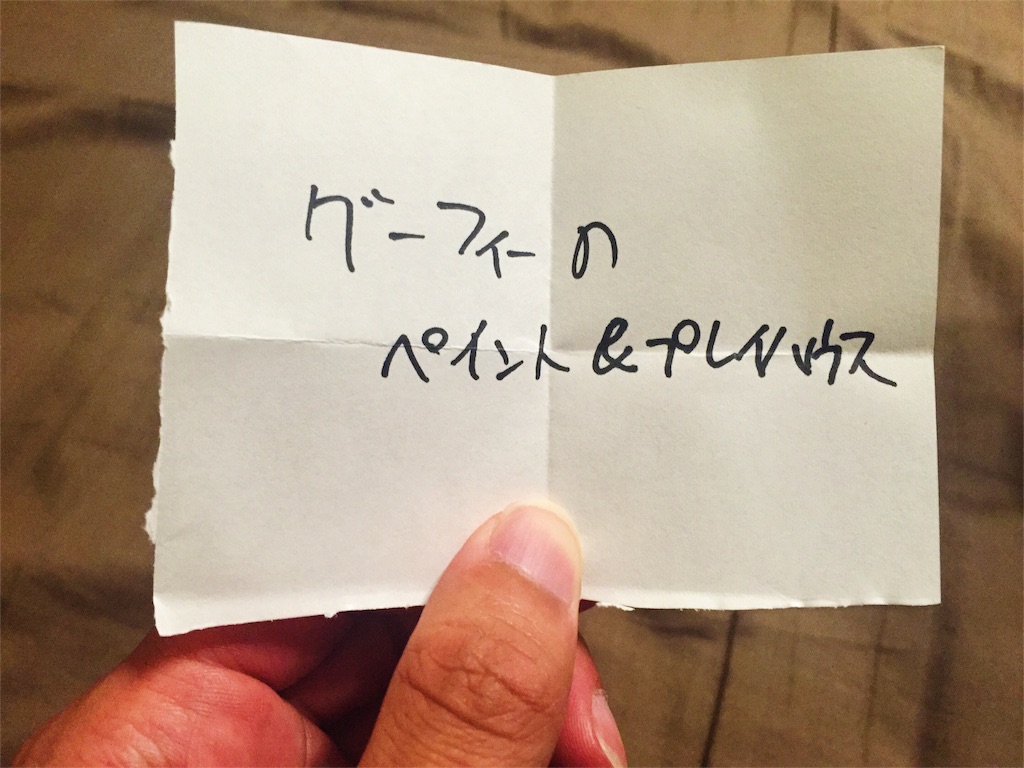 グーフィーの
ペイント&プレイハウス